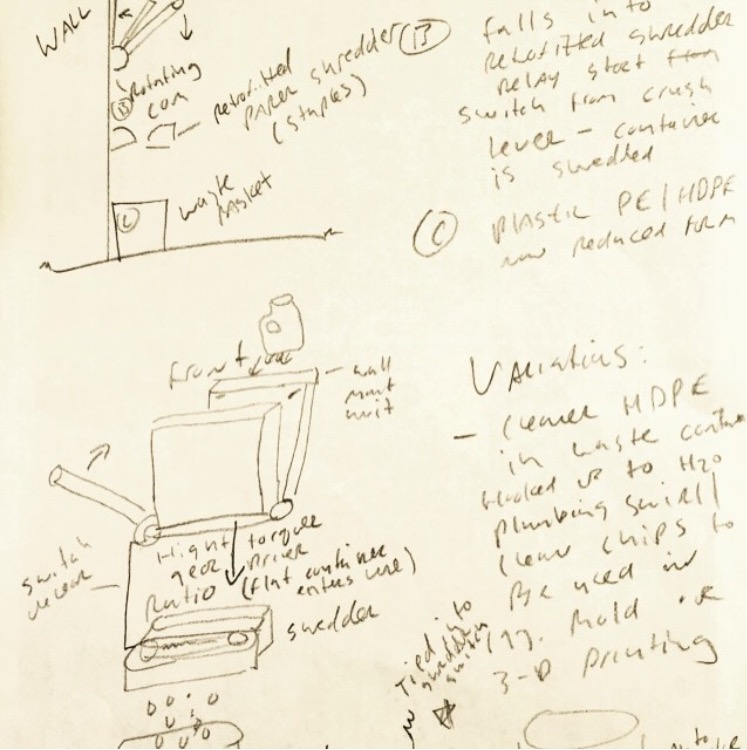 WALL
rotating
cam
retrofitted
paper shredder
(staples)
C
waste
basket
B falls into
retrofitted shredder
relay start from
switch from crush
lever - container
is shredded
C plastic PE/HDPE
now reduced form
front
wall
mount
unit
switch
High torque
gear driver
Ratio (flat container
enters here)
shredder
Variations:
- cleaner HDPE
in waste
hooked up to H2O
plumbing swirl/
clean chips to
be used in
inj. mold or
3-D printing
Tied into
shredder
switch